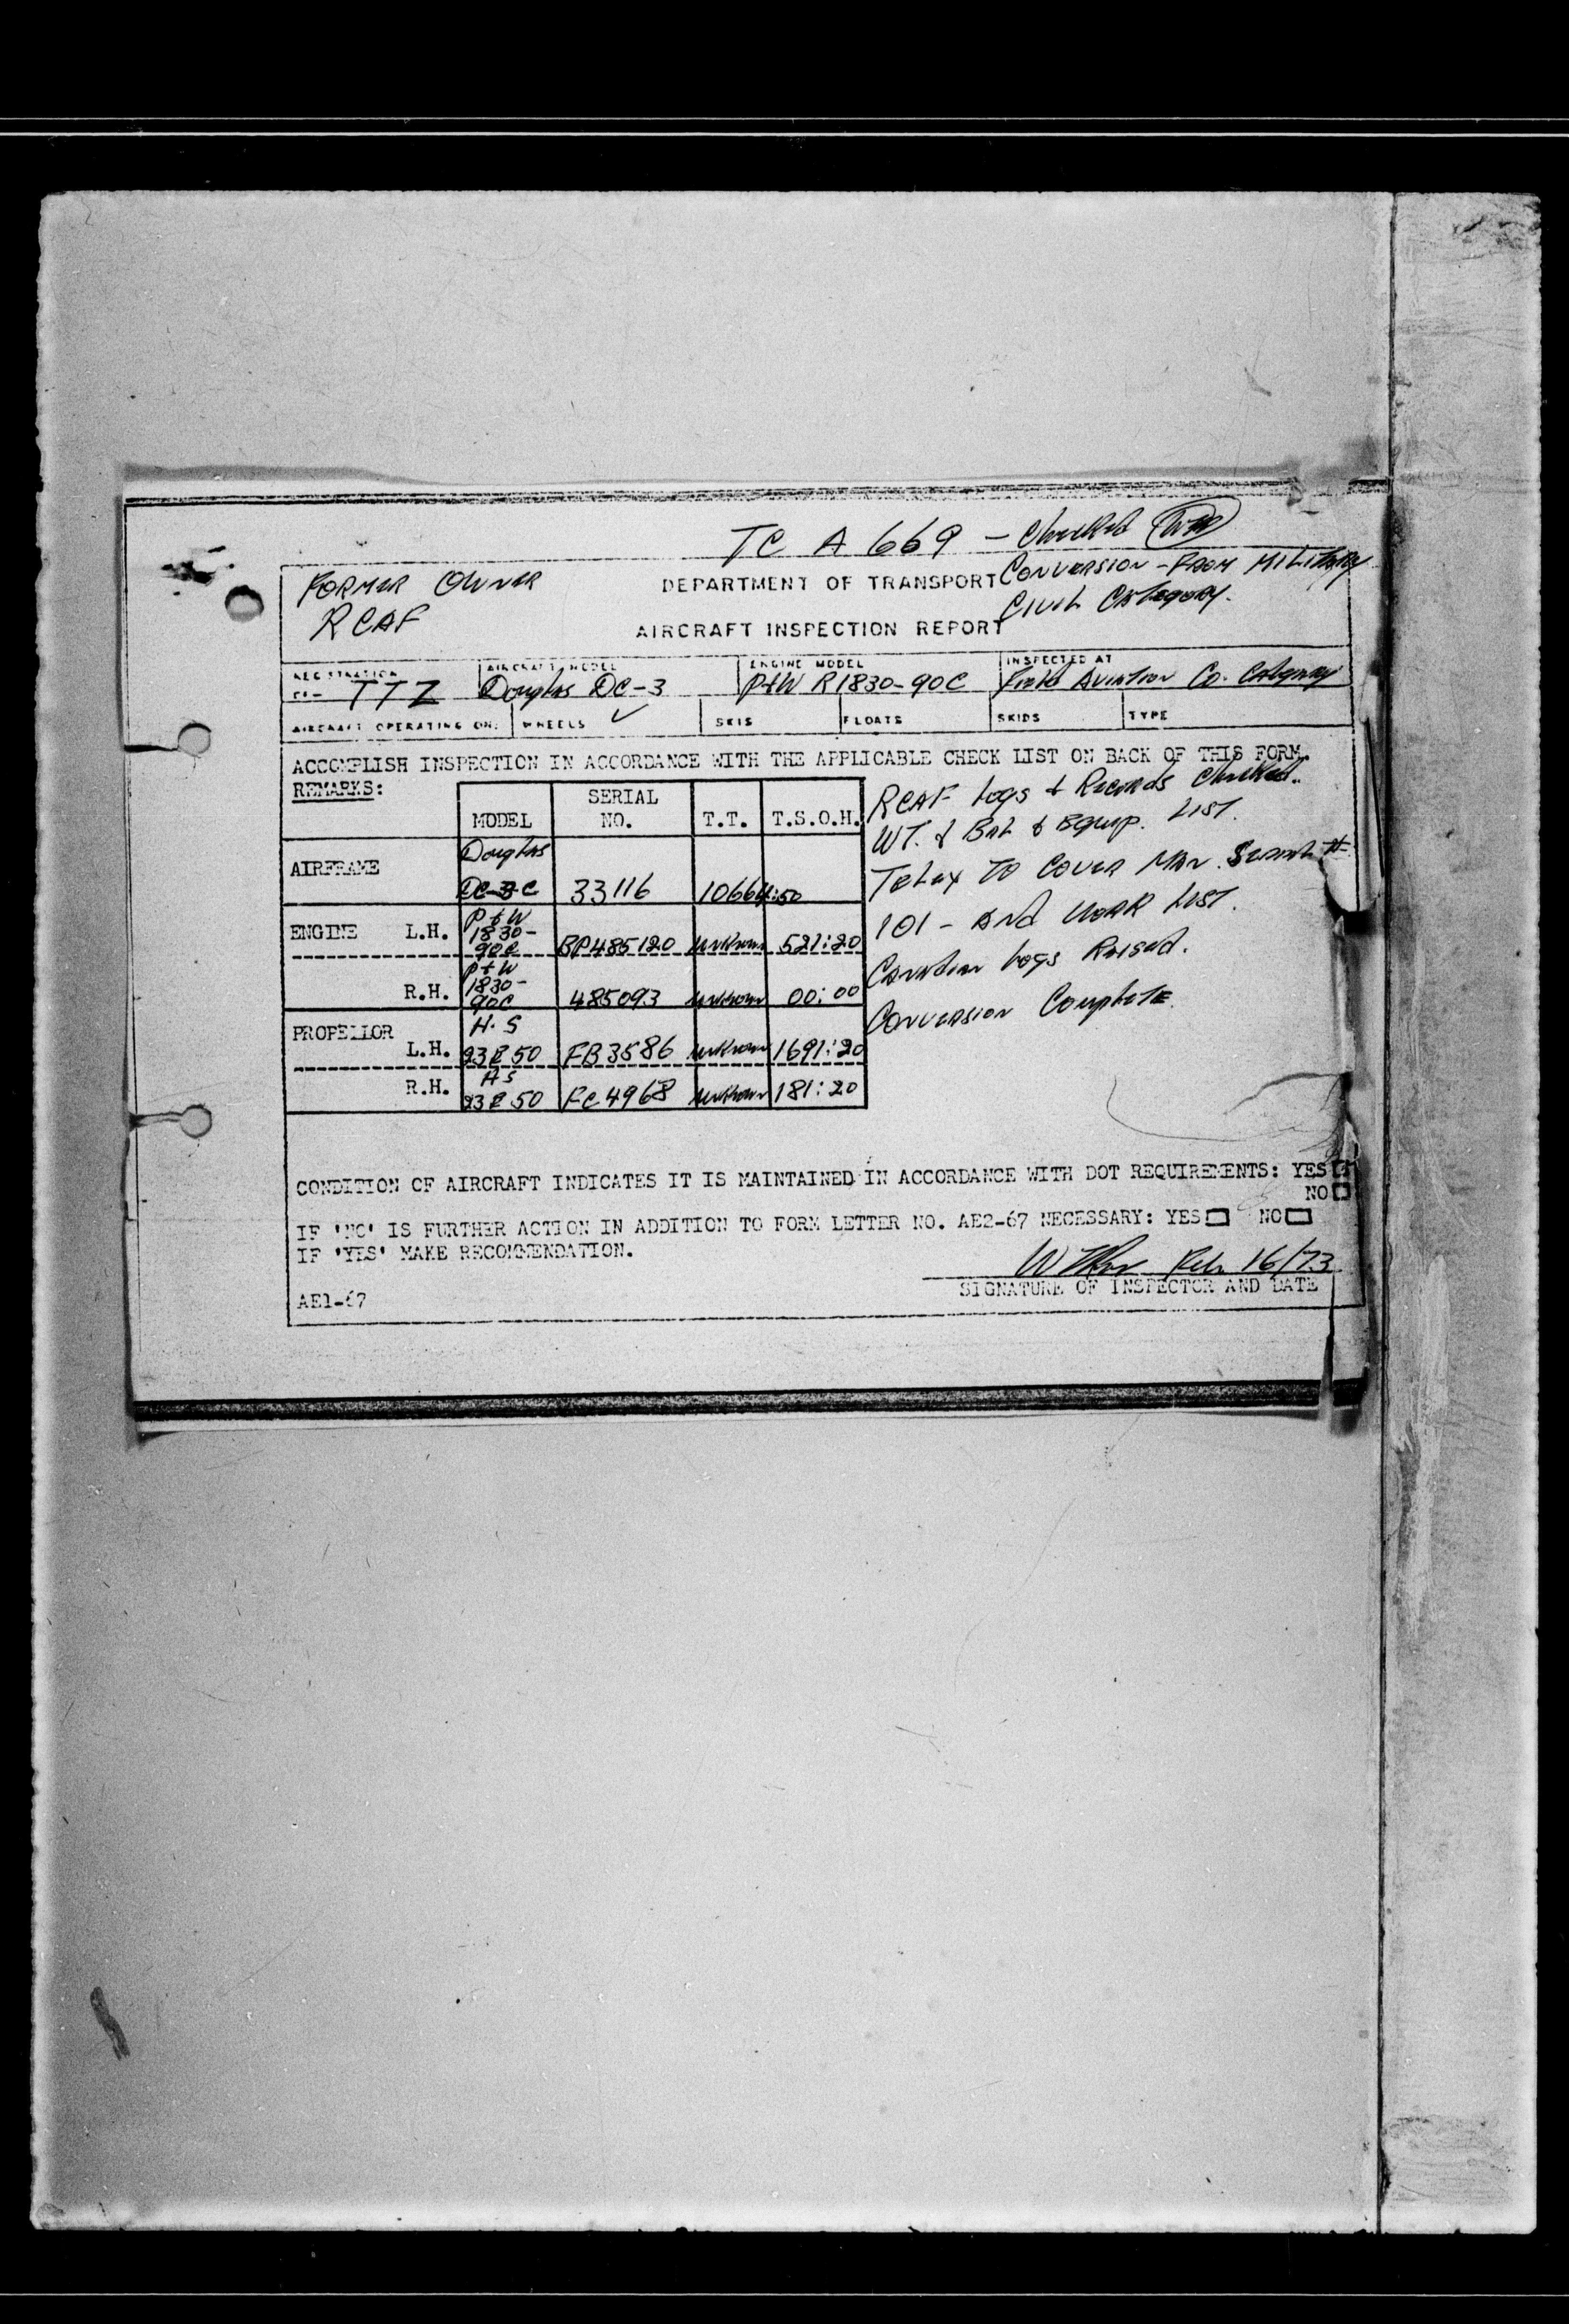 TC A 669 - Checked WM
FORMER OWNER
RCAF
DEPARTMENT OF TRANSPORT
CONVERSION - FROM MILITARY
CIVIL CATEGORY.
AIRCRAFT INSPECTION REPORT
REGISTRATION AIRCRAFT MODEL ENGINE MODEL INSPECTED AT
CF- TTZ Douglas DC-3 P+W R1830-90C Field Aviation Co. Calgary
AIRCRAFT OPERATING ON: WHEELS ✓ SKIS FLOATS SKIDS TYPE
ACCOMPLISH INSPECTION IN ACCORDANCE WITH THE APPLICABLE CHECK LIST ON BACK OF THIS FORM.
REMARKS:
MODEL SERIAL NO. T.T. T.S.O.H.
AIRFRAME Douglas DC-3C 33116 10664:50
ENGINE L.H. P+W 1830-90C BP485120 unknown 521:20
R.H. P+W 1830-90C 485093 unknown 00:00
PROPELLOR L.H. H.S 23E50 FB3586 unknown 1691:20
R.H. HS 23E50 FC4968 unknown 181:20
RCAF Logs & Records Checked.
WT. & Bal & Equip. LIST.
Telex TO Cover Man. Serial #
101 - And WORK LIST.
Canadian Logs Raised.
Conversion Complete.
CONDITION OF AIRCRAFT INDICATES IT IS MAINTAINED IN ACCORDANCE WITH DOT REQUIREMENTS: YES
NO
IF 'NO' IS FURTHER ACTION IN ADDITION TO FORM LETTER NO. AE2-67 NECESSARY: YES NO
IF 'YES' MAKE RECOMMENDATION.
Feb 16/73
SIGNATURE OF INSPECTOR AND DATE
AE1-67